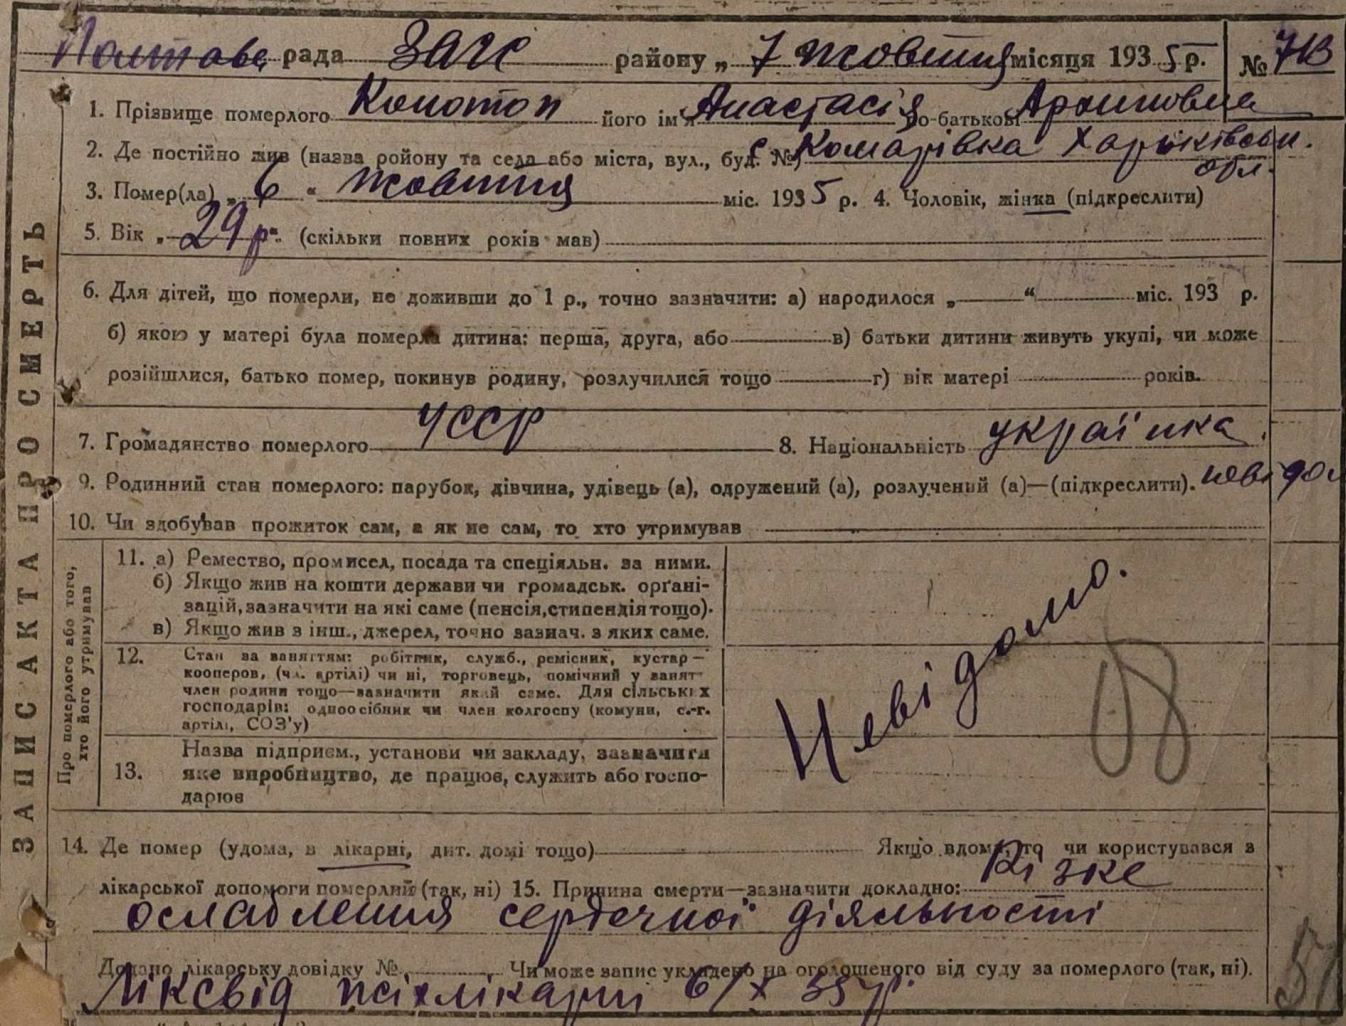 Полтава рада ЗАГС району „ 7 жовтня місяця 1935 р. № 713
1. Прізвище померлого Конотоп його ім'я Анастасія по-батькові
2. Де постійно жив (назва ройону та села або міста, вул., буд. №) с. Комарівка Харківськ. обл.
3. Помер(ла) „ 6 “ жовтня міс. 1935 р. 4. Чоловік, жінка (підкреслити)
5. Вік „ 29 р. “ (скільки повних років мав)
6. Для дітей, що померли, не доживши до 1 р., точно зазначити: а) народилося „ “ міс. 193 р.
б) якою у матері була померла дитина: перша, друга, або в) батьки дитини живуть укупі, чи може
розійшлися, батько помер, покинув родину, розлучилися тощо г) вік матері років.
7. Громадянство померлого УССР 8. Національність українка.
9. Родинний стан померлого: парубок, дівчина, удівець (а), одружений (а), розлучений (а)—(підкреслити). невідом
10. Чи здобував прожиток сам, а як не сам, то хто утримував
ЗАПИС АКТА ПРО СМЕРТЬ
Про померлого або того,
хто його утримував
11. а) Ремество, промисел, посада та спеціяльн. за ними.
б) Якщо жив на кошти держави чи громадськ. орґані-
зацій, зазначити на які саме (пенсія, стипендія тощо).
в) Якщо жив з інш., джерел, точно зазнач. з яких саме.
12. Стан за заняттям: робітник, служб., ремісник, кустар—
кооперов, (чл. артілі) чи ні, торговець, помічний у занят
член родини тощо—зазначити який саме. Для сільських
господарів: одноосібник чи член колгоспу (комуни, с.-г.
артілі, СОЗ'у)
13. Назва підприєм., установи чи закладу, зазначити
яке виробництво, де працює, служить або госпо-
дарює
Невідомо.
14. Де помер (удома, в лікарні, дит. домі тощо) Якщо вдома, то чи користувався з
лікарської допомоги померлий (так, ні) 15. Причина смерти—зазначити докладно: Різке
ослаблення сердечної діяльності
Додано лікарську довідку №. Чи може запис укладено на оголошеного від суду за померлого (так, ні).
Ліксвід психлікарні 6/X 35 р.